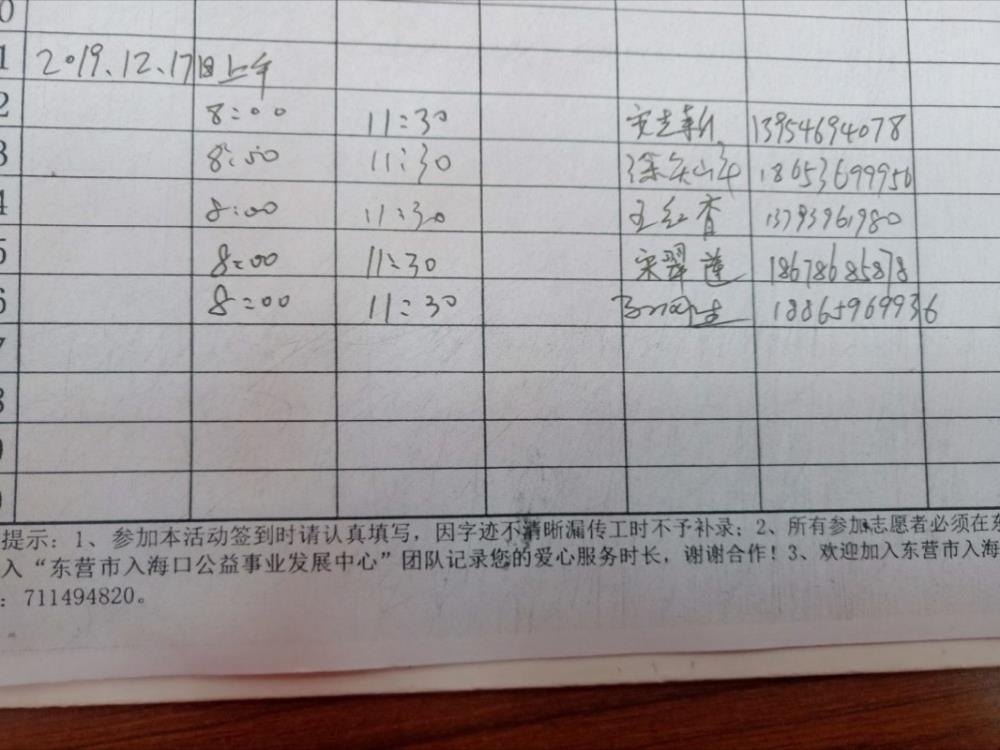 1 2019.12.17日上午
2 8:00 11:30 13954694078
3 8:50 11:30 18653699956
4 8:00 11:30 王红香 13793961980
5 8:00 11:30 宋翠莲 18678685878
6 8:00 11:30 18865969936
7
提示：1、参加本活动签到时请认真填写，因字迹不清晰漏传工时不予补录；2、所有参加志愿者必须在东
入“东营市入海口公益事业发展中心”团队记录您的爱心服务时长，谢谢合作！3、欢迎加入东营市入海
：711494820。